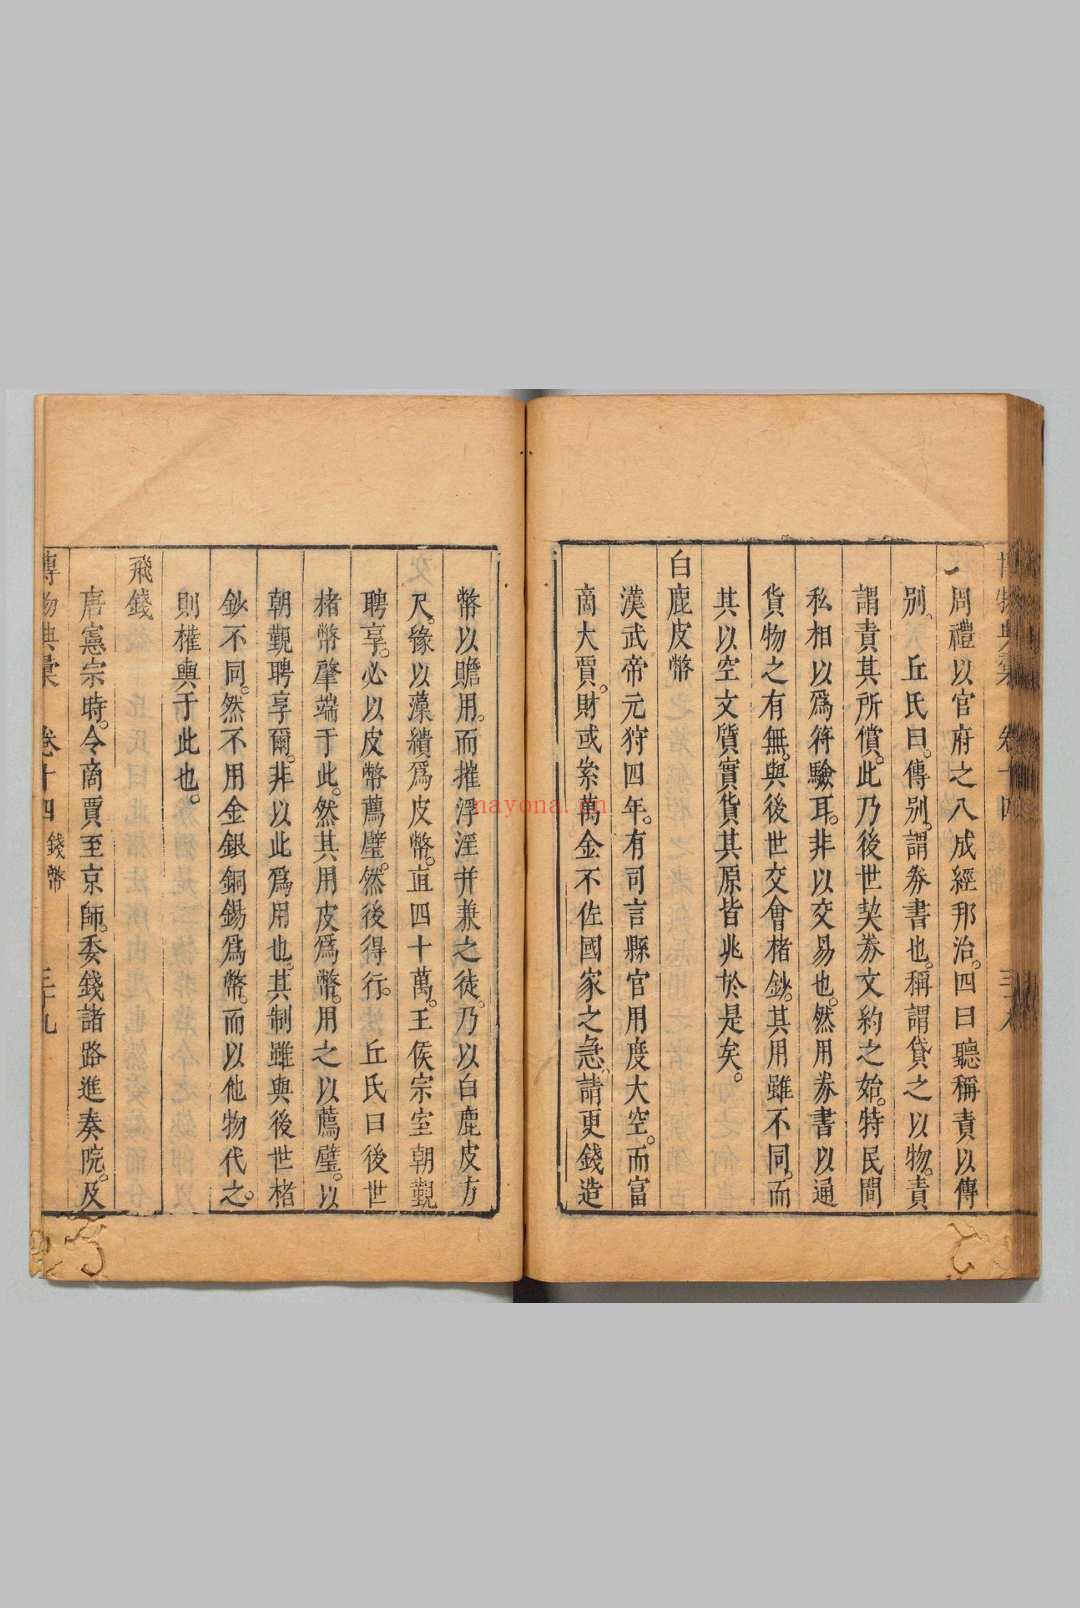 周禮以官府之八成經邦治。四曰聽稱責以傳
別。 丘氏曰。傳別。謂券書也。稱謂貸之以物。責
謂責其所償。此乃後世契券文約之始。特民間
私相以爲符驗耳。非以交易也。然用券書以通
貨物之有無。與後世交會楮鈔。其用雖不同。而
其以空文質實貨。其原皆兆於是矣。
白鹿皮幣
漢武帝元狩四年。有司言縣官用度大空。而富
商大賈。財或絫萬金不佐國家之急。請更錢造
幣以贍用。而摧浮淫并兼之徒。乃以白鹿皮方
尺。緣以藻繢爲皮幣。直四十萬。王侯宗室朝覲
聘享。必以皮幣薦璧。然後得行。 丘氏曰後世
楮幣肇端于此。然其用皮爲幣。用之以薦璧。以
朝覲聘享爾。非以此爲用也。其制雖與後世楮
鈔不同。然不用金銀銅錫爲幣。而以他物代之。
則權輿于此也。
飛錢
唐憲宗時。令商賈至京師。委錢諸路進奏院。及
博物典彙 卷十四 錢幣 三十九
nayona.cn